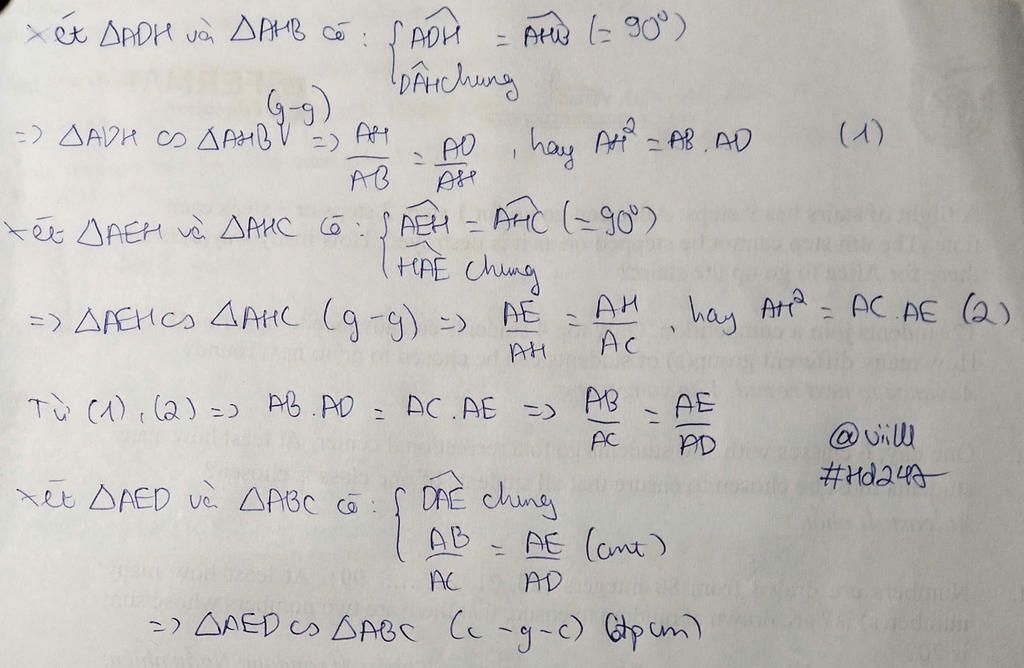 Xét △ADH và △AHB có : { ADH^ = AHB^ (= 90°)
DÂH chung
=> △ADH ∽ △AHB (g-g) => AH/AB = AD/AH , hay AH² = AB.AD (1)
Xét △AEH và △AHC có : { AEH^ = AHC^ (= 90°)
HÂE chung
=> △AEH ∽ △AHC (g-g) => AE/AH = AH/AC hay AH² = AC.AE (2)
Từ (1), (2) => AB.AD = AC.AE => AB/AC = AE/AD
@viill
#Hd247
Xét △AED và △ABC có : { DAE^ chung
AB/AC = AE/AD (cmt)
=> △AED ∽ △ABC (c-g-c) (đpcm)